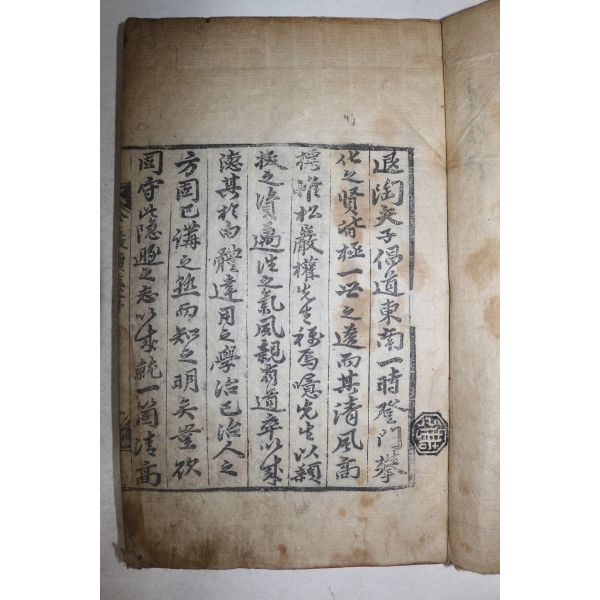 退陶夫子倡道東南一時登門攀
化之賢皆極一世之選而其清風高
標惟松巖權先生稱焉噫先生以穎
拔之資邁往之氣風親有道卒以成
德其於由體達用之學治己治人之
方固已講之熟而知之明矣豈欲
固守此隱遯之志以成就一箇清高